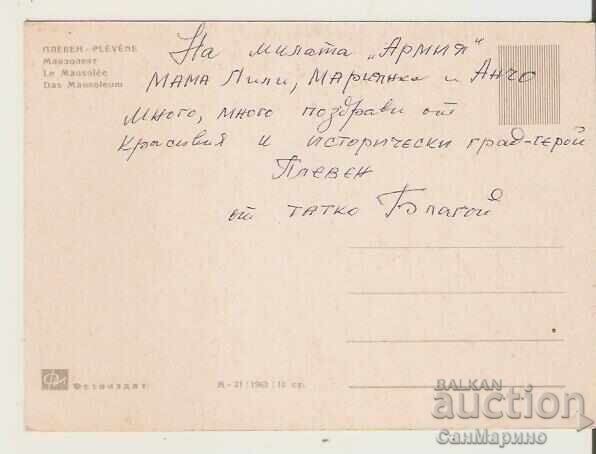 ПЛЕВЕН - PLÉVÈNE
Мавзолеят
Le Mausolée
Das Mausoleum
На милата „Армия"
Мама Лили, Марианка и Анчо
Много, много поздрави от
Красивия и исторически град-герой
Плевен
от татко Благой
Фотоиздат
М - 21 / 1963 / 10 ст.
BALKAN
auction
СанМарино